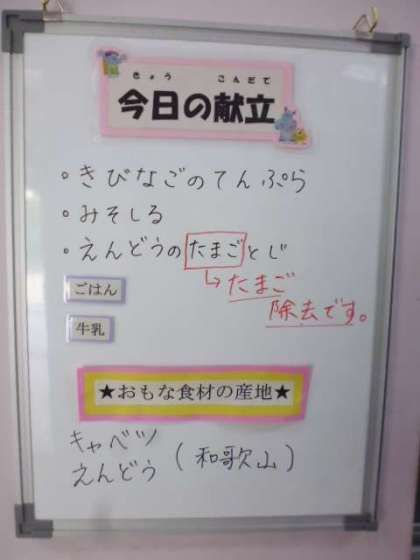 きょう こんだて
今日の献立
・きびなごのてんぷら
・みそしる
・えんどうのたまごとじ
↳たまご
除去です。
ごはん
牛乳
★おもな食材の産地★
キャベツ
えんどう (和歌山)